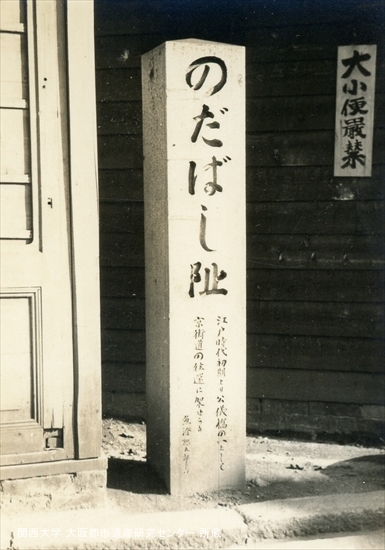 のだばし跡
江戸時代初期より公儀橋の一として
京街道の
大小便厳禁
関西大学 大阪都市遺産研究センター 所蔵